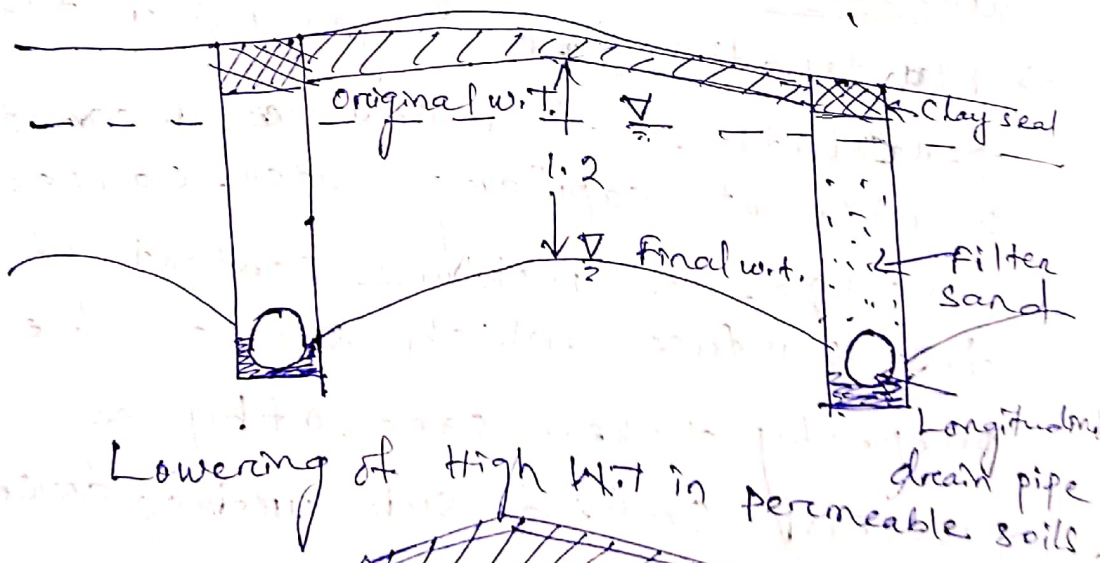 Original w.t.
Clay seal
1.2
Final w.t.
Filter
sand
Longitudin
drain pipe
Lowering of High W.T in permeable soils